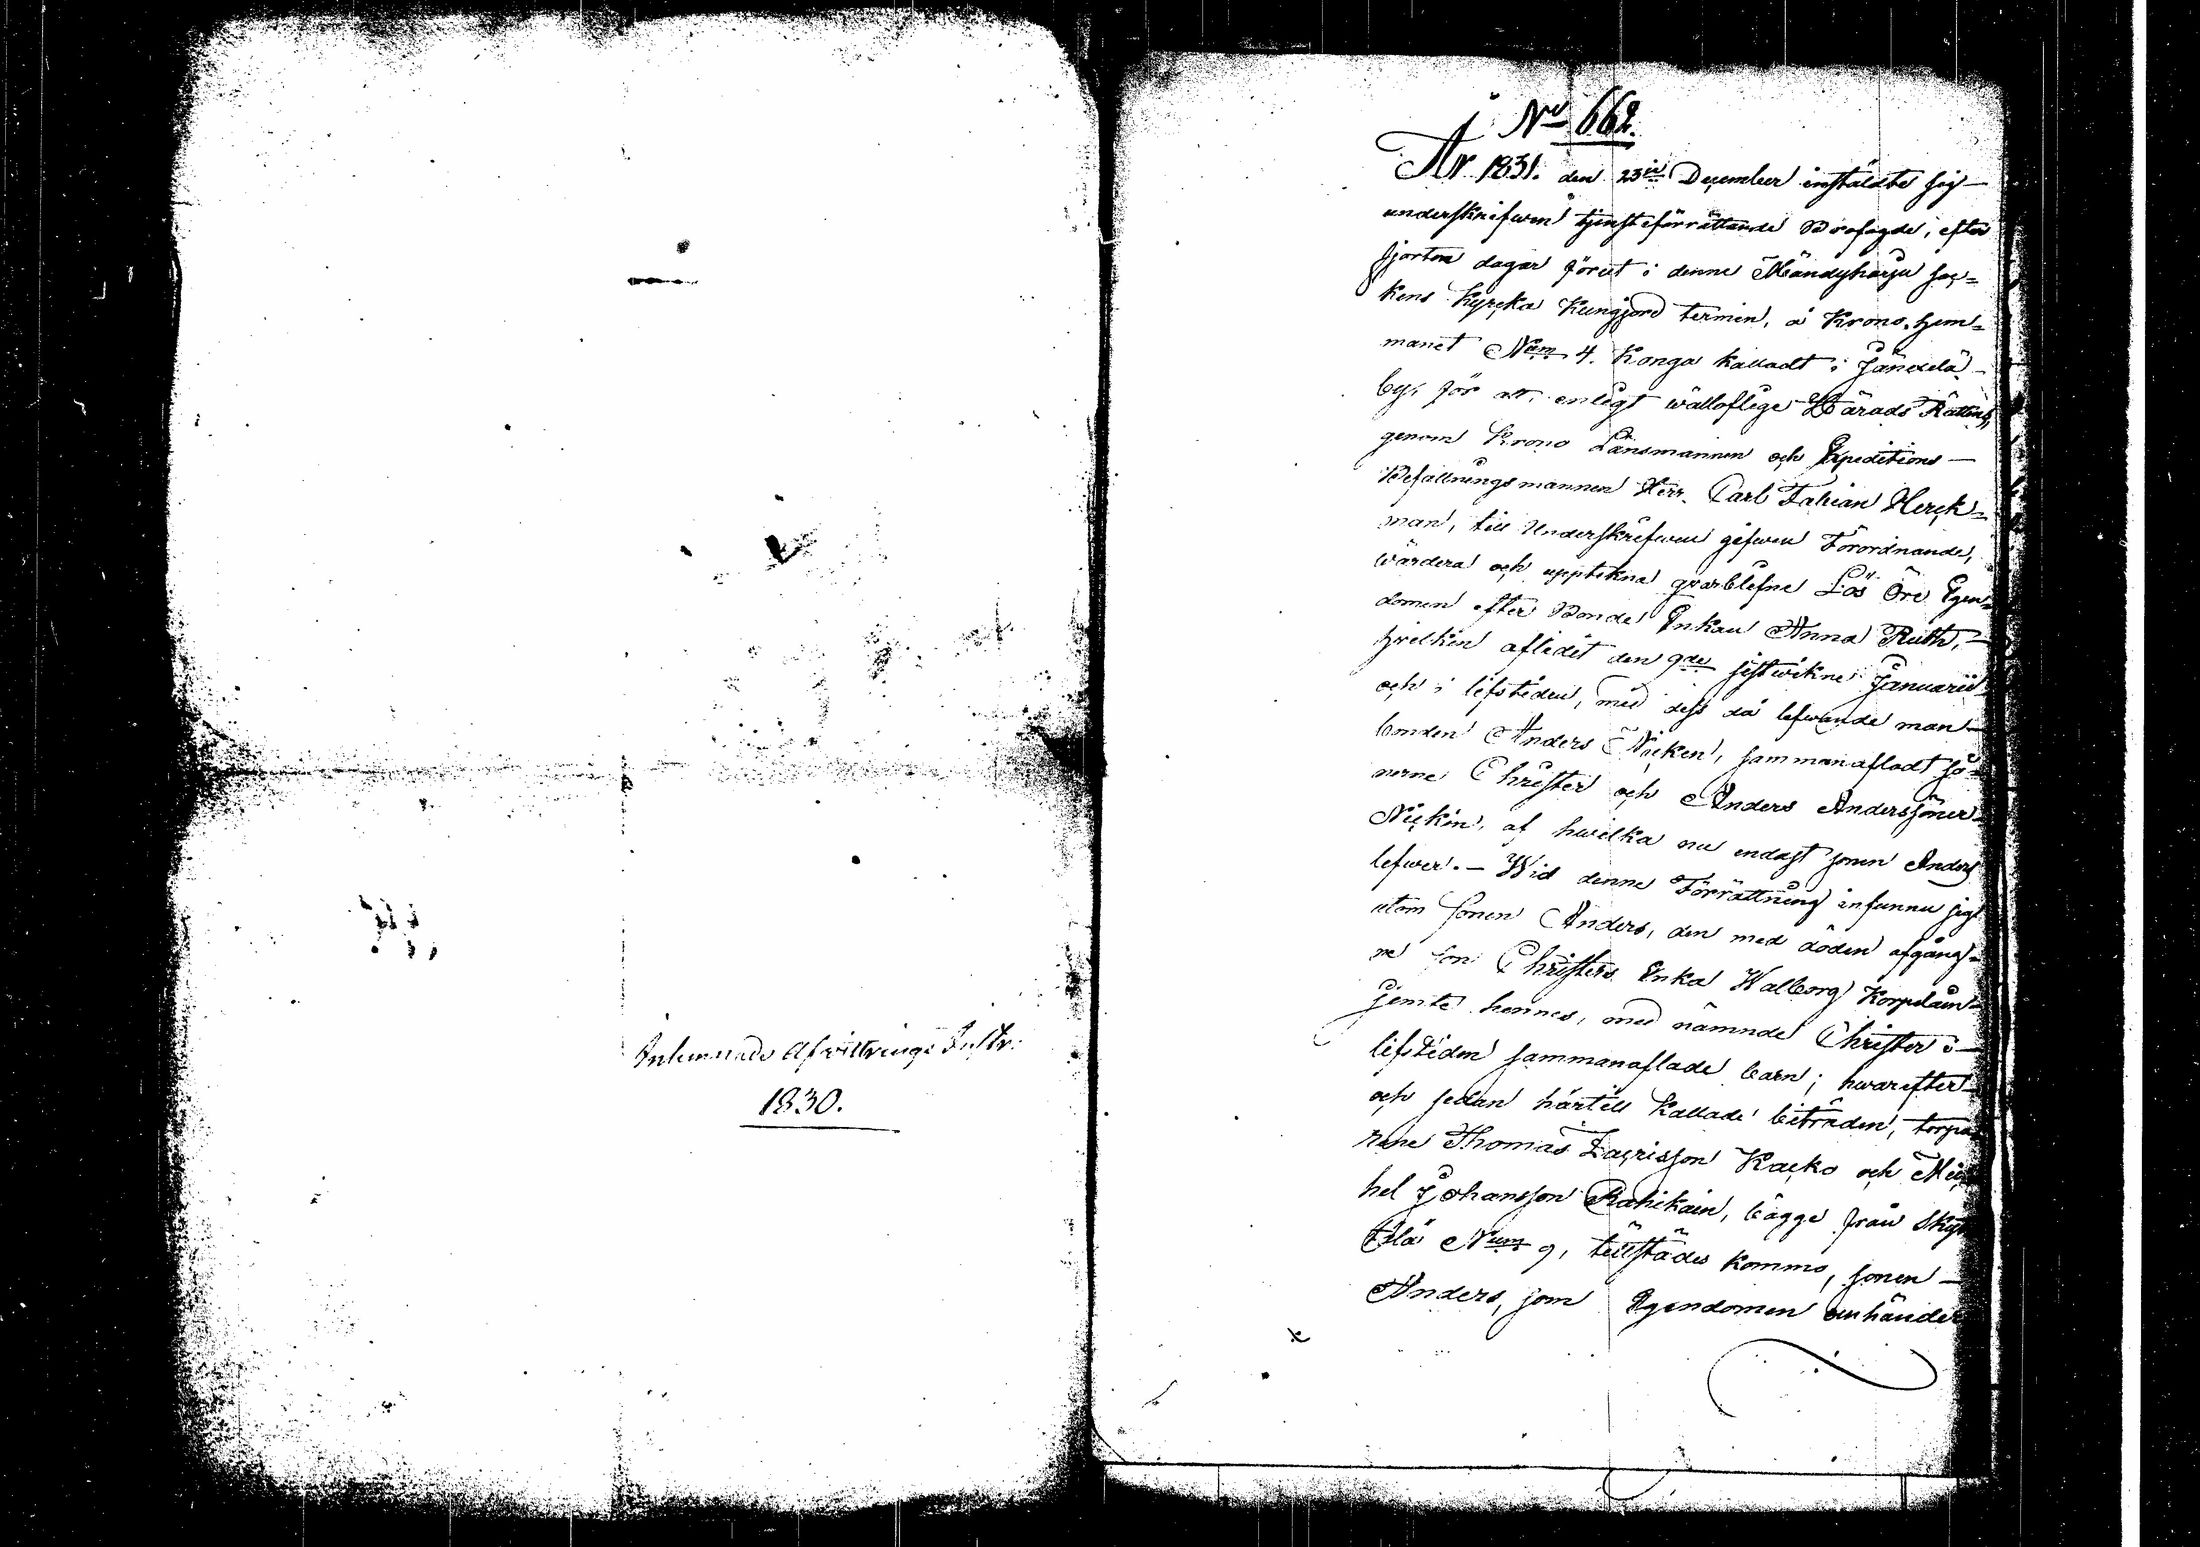 Inlemnade Afvittrings Instr:
1830.
No 662.
År 1831. den 23de December instälde sig
underskrifwen tjensteförrättande Brofogde, efter
fjorton dagar förut i denne Mändyharju soc=
kens Kyrcka Kungjord termin, å Krono-hem=
manet Num 4. Konga kalladt i
by, för att, enligt wällofliga Härads Rättens,
genom Krono Länsmannen och Expeditions
Befallningsmannen Herr Carl Fabian Herck=
man, till Underskrifwen gifwen Förordnande,
wärdera och upptekna qvarblefne Lös Öre Egen=
domen efter Bonde Enkan Anna Ruth,
hvilken aflidit den 9de sistwikne Januarii
och i lifstiden, med dess då lefwande man
bonden Anders Nicken, sammanafladt sö=
nerne Christer och Anders Anderssöner
Nickin, af hwilka nu endast sonen Anders
lefwer. – Wid denne Förrättning infunnu sig
utom sonen Anders, den med döden afgång=
ne son Christers Enka Walborg
jemte hennes, med nämnde Christer i
lifstiden sammanaflade barn; hwarefter
och sedan härtill kallade biträden, torpa
rene Thomas Zacrisson Kacko och Mic
hel Johansson Rahikain, bägge från
Num 9, tillstädes kommo, sonen
Anders, som Egendomen omhänder